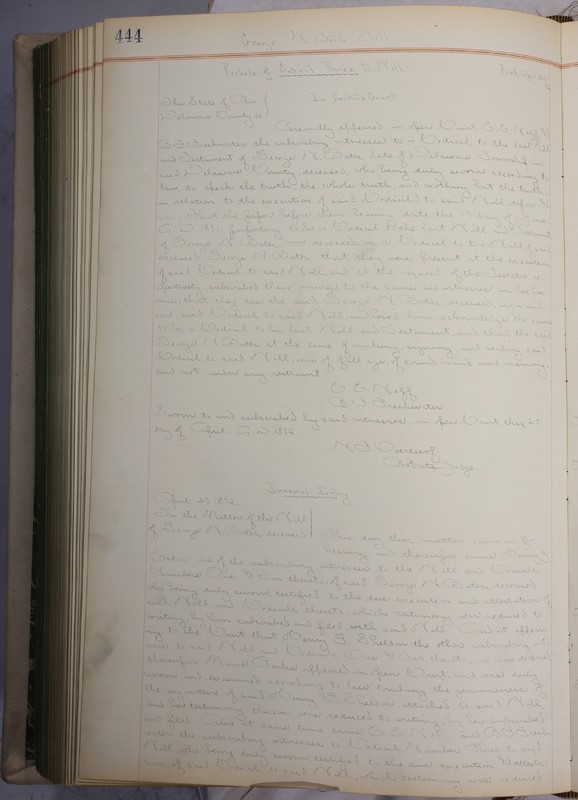 444
George W Bates Will
Probate of Codicil Three to Will
The State of Ohio
Delaware County ss
In Probate Court.
Personally appeared in open Court E. E. Neff
B F Freshwater the subscribing witnesses to a Codicil to the last Will
and Testament of George W. Bates late of Delaware Township in
said Delaware County, deceased who being duly sworn according to
law to speak the truth, the whole truth, and nothing but the truth,
in relation to the execution of said Codicil to said Will depose
That the paper before them bearing date the 19 day of
A.D. 1891. purporting to be a Codicil to the last Will and Testament
of George W Bates now deceased, is a Codicil to the Will of said
deceased George W Bates that they were present at the execution
of said Codicil to said Will, and at the request of the Testator
subscribed their names to the same as witnesses, in his
that they saw the said George W Bates, deceased, sign and
seal said Codicil to said Will, and heard him acknowledge the same
to be a Codicil to his last Will and Testament, and that the said
George W Bates at the time of making, signing, and sealing said
Codicil to said Will, was of full age, of sound mind and memory,
and not under any restraint.
E E Neff
B F Freshwater
Sworn to and subscribed by said witnesses, in open Court this 25
day of April A.D. 1892.
Probate Judge.
Journal Entry
April 25 1892.
In the Matter of the Will
of George W Bates deceased
This day this matter came on for
hearing and thereupon came Henry
one of the subscribing witnesses to the Will and Codicils
Number One & Two thereto, of said George W Bates, deceased
who being duly sworn testified to the due execution and attestation of
said Will, and Codicils thereto which testimony was reduced to
writing by him subscribed and filed with said Will. And it
to the Court that Henry the other subscribing
to said Will and Codicils One & Two thereto, is now deceased
therefor appeared in open Court, and was duly
sworn and examined according to law touching the genuineness of
the signature of said Henry attached to said Will
and her testimony thereon was reduced to writing by her subscribed
and filed. Also at same time came E E Neff and B F
the subscribing witnesses to Codicil Number Three to said
Will, who being duly sworn testified to the due execution &
of said Codicil to said Will, which testimony was reduced